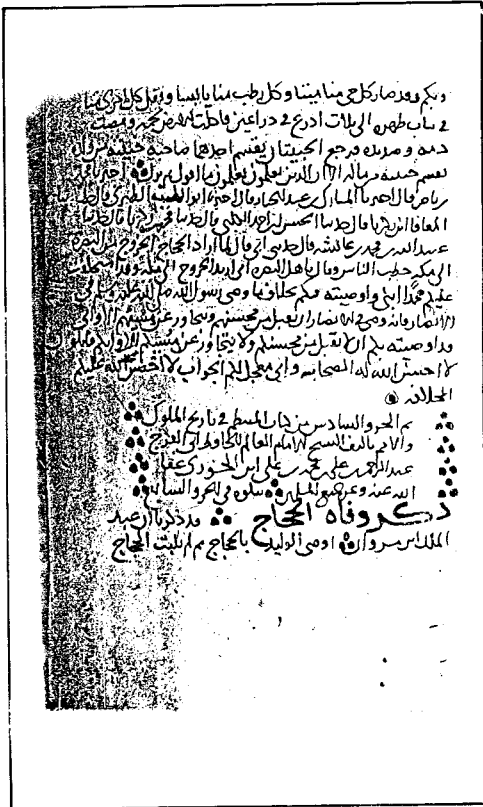 وبكم وقد صار كل حي منا ميتا وكل رطب منا يابسا ونقل كل امرئ منا
في ثياب طهره الى ثلاث اذرع في ذراعين فاكلت الارض لحمه ومصت
دمه وصديده ورجع الحبيبان يقتسم احدهما صاحبه حبيبه من ماله
يقسم حبيبه وماله الا ان الذين يعلمون يعلمون ما اقول اخبرنا
قال اخبرنا المبارك بن عبد الجبار قال اخبرنا ابو الطيب الطبري قال حدثنا
المعافا ابن زكريا قال حدثنا الحسين بن احمد الكلبي قال حدثنا محمد بن زكريا قال حدثنا
عبيد الله بن محمد بن عائشه قال حدثني ابي قال لما اراد الحجاج الخروج من البصره
الى مكه خطب الناس وقال يا اهل البصره اني اريد الخروج الى مكه وقد استخلفت
عليكم محمدا ابني واوصيته فيكم بخلاف ما وصى رسول الله صلى الله عليه وسلم في
الانصار فانه وصى في الانصار ان يقبل من محسنهم ويتجاوز عن مسيئهم الا واني
قد اوصيته بكم الا يقبل من محسنكم ولا يتجاوز عن مسيئكم الا وانكم قايلون
لا احسن الله له الصحابه واني معجل لكم الجواب لا احسن الله عليكم
الخلافه
تم الجزو السادس من كتاب المنتظم في تاريخ الملوك
والامم تاليف الشيخ الامام العالم الحافظ ابي الفرج
عبد الرحمن بن علي بن محمد بن علي ابن الجوزي عفا
الله عنه وعن جميع المسلمين يتلوه في الجزو السابع
ذكر وفاه الحجاج قد ذكرنا ان عبد
الملك ابن مروان اوصى الوليد بالحجاج ثم لم يلبث الحجاج